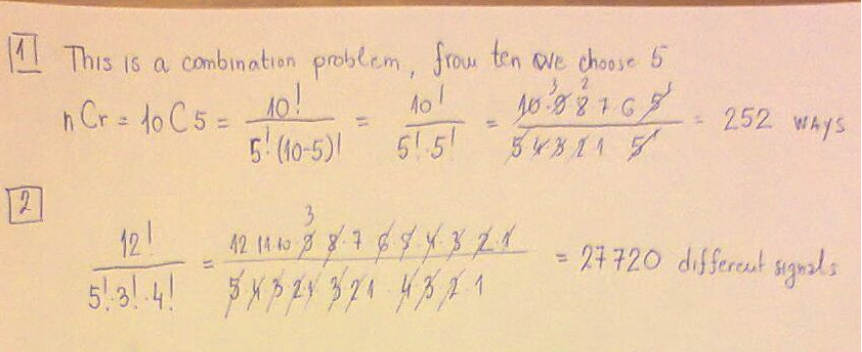 1 This is a combination problem, from ten we choose 5
nCr = 10C5 = 10! / 5!·(10-5)! = 10! / 5!·5! = 10·9 8 7 6 5! / 5 4 3 2 1 5! = 252 WAYS
2
12! / 5!·3!·4! = 12 11 10·9 8·7 6·5·4·3 2·1 / 5 4 3 2 1 3 2 1 · 4 3·2·1 = 27720 different signals